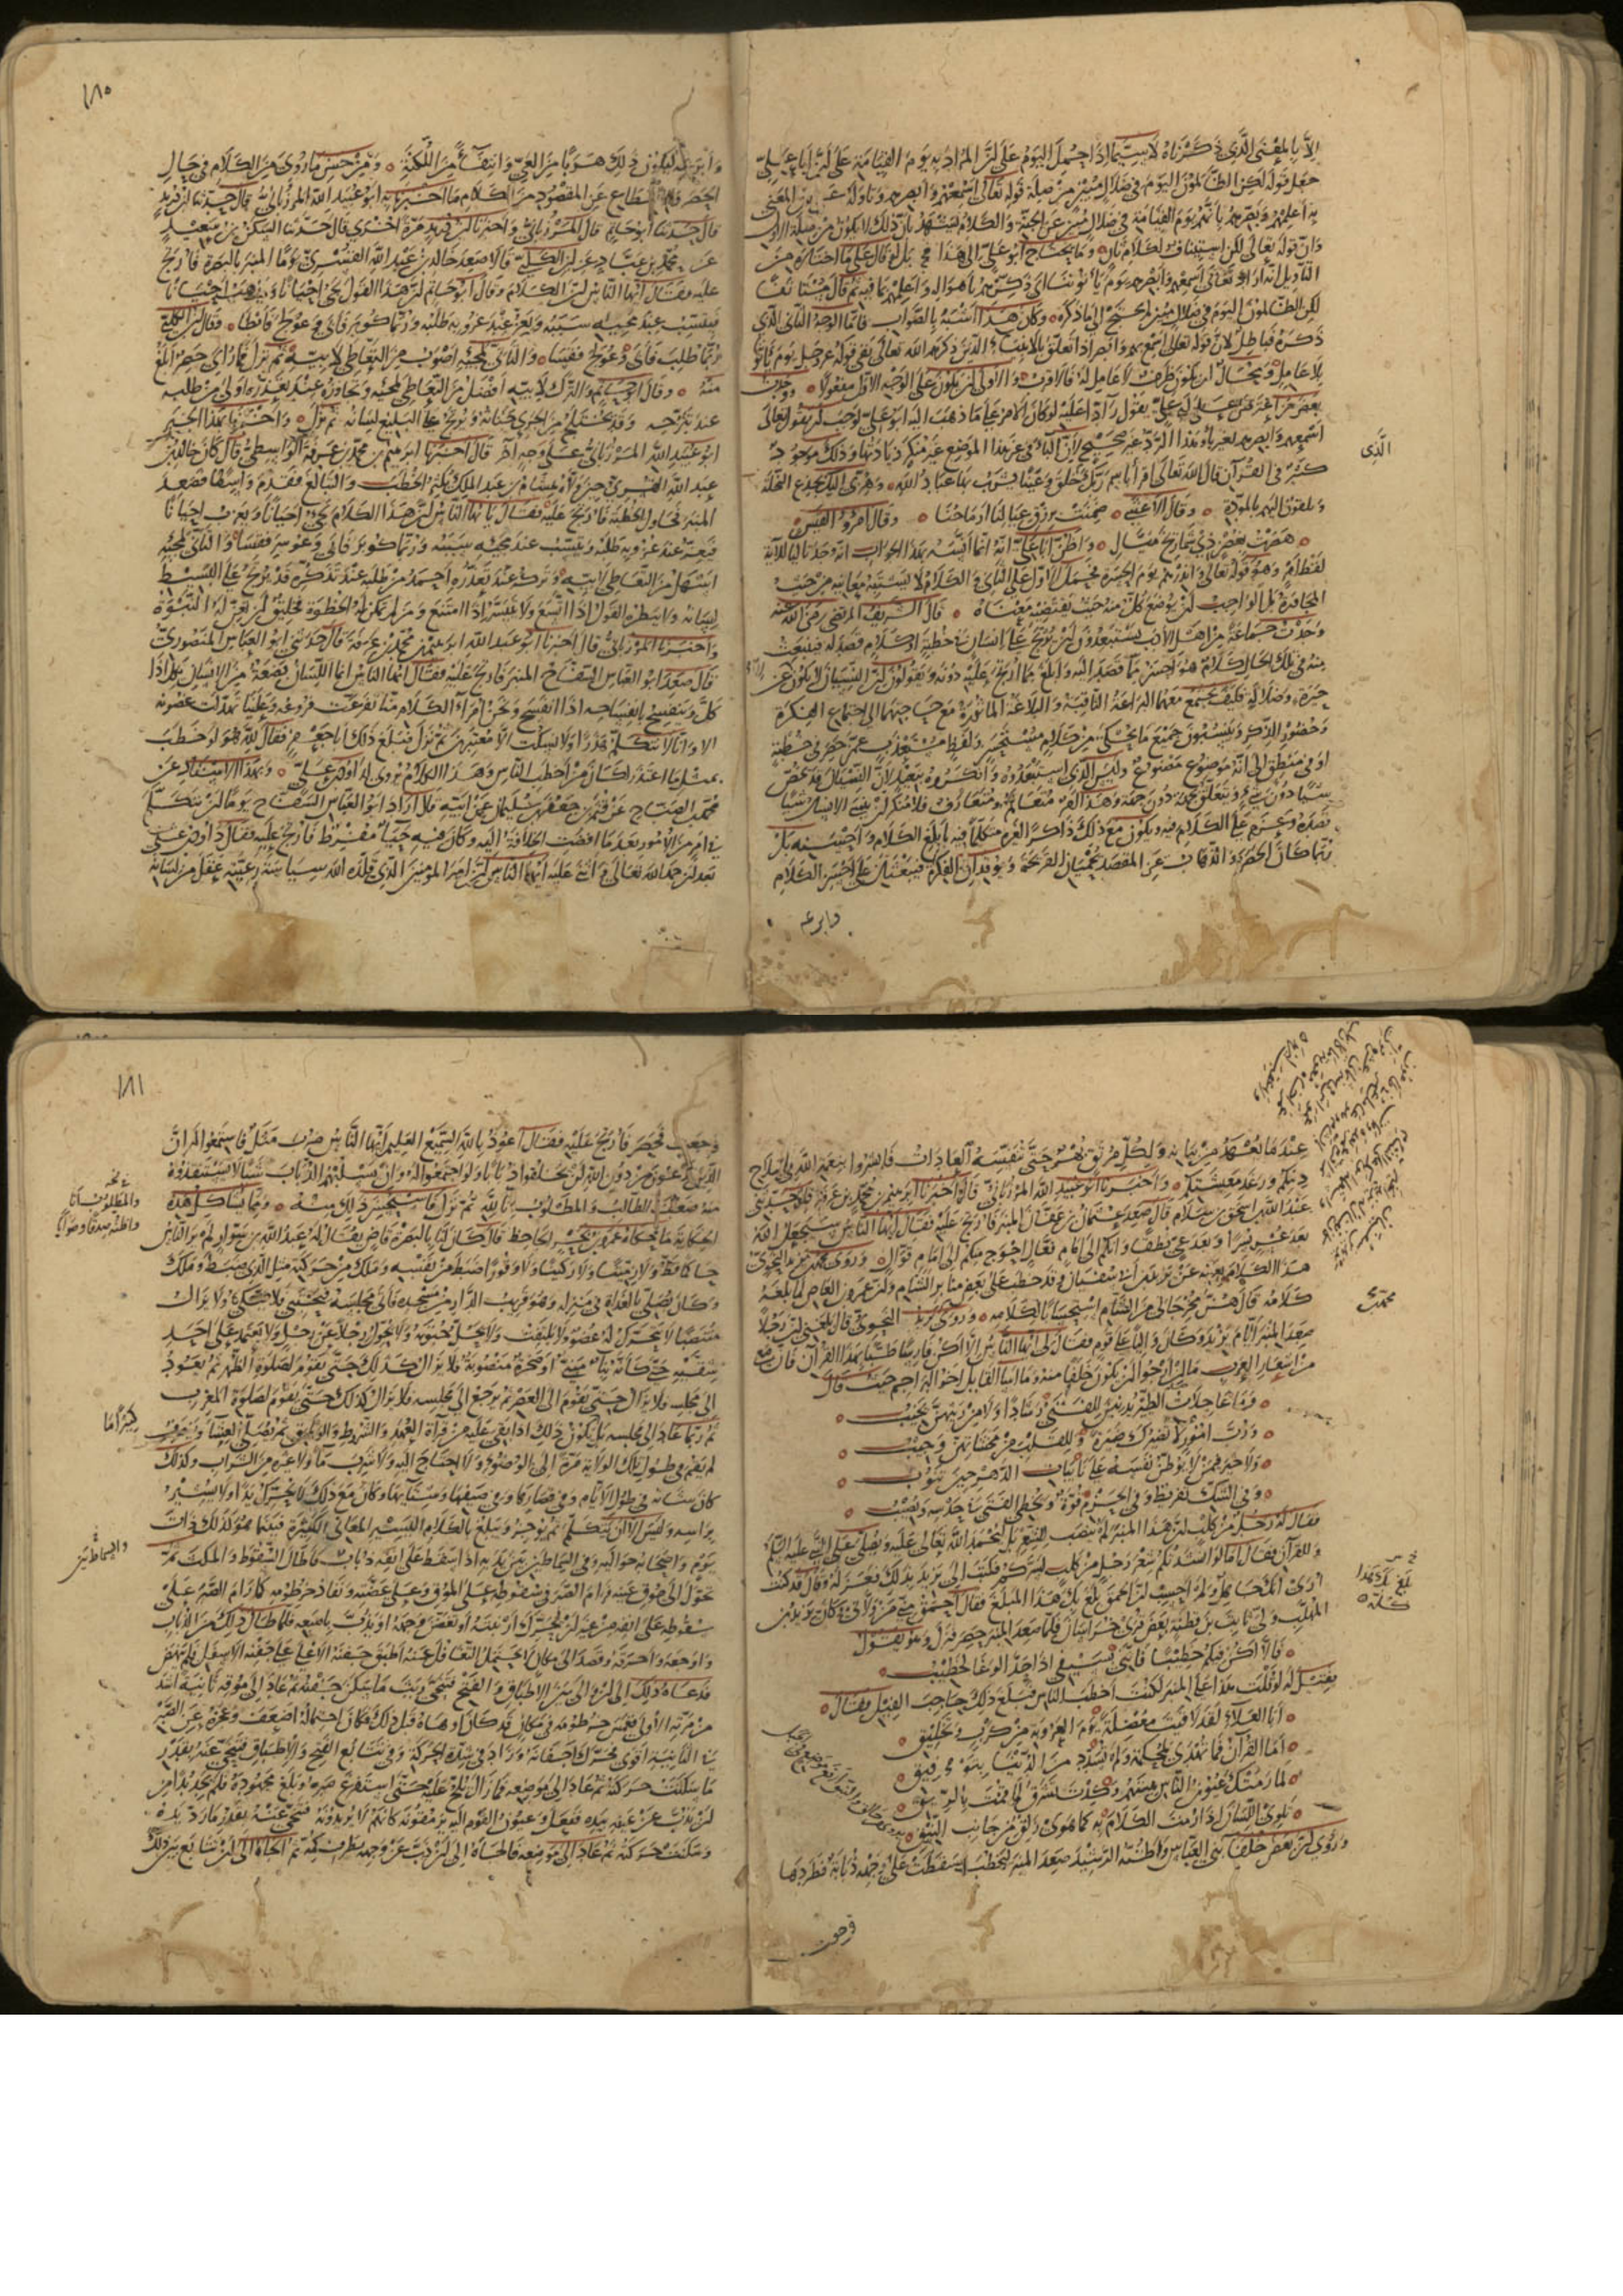 الا بالمعنى الذي ذكرناه لا سيما اذا حمل اليوم على ان المراد به يوم القيامة على ان ابا علي
جعل قوله لكن الظالمون اليوم في ضلال مبين من صلة قوله تعالى اسمع بهم وابصر بهم وتأوله على ان المعنى
به اعلمهم وبصرهم بانهم يوم القيامة في ضلال مبين عن الجنة والكلام يشهد بان ذلك لا يكون من صلة الاول
وان قوله تعالى لكن استيناف لكلام ثان وما يحتاج ابو علي الى هذا بل لو قال على ما اختاره من
التأويل انه اراد تعالى اسمعهم وابصرهم يوم يأتوننا اي ذكرهم باهواله واعلمهم بما فيه ثم قال مستأنفا
لكن الظالمون اليوم في ضلال مبين لم يحتج الى ما ذكره وكان هذا اشبه بالصواب فاما الوجه الثاني الذي
ذكره فباطل لان قوله تعالى اسمع بهم وابصر اذا تعلق بالانبياء الذين ذكرهم الله تعالى بقي قوله عز وجل يوم يأتوننا
بلا عامل ومحال ان يكون ظرف لا عامل له فالاقرب والاولى ان يكون على الوجه الاول مفعولا ووجدت
بعض من اعترض على ابي علي يقول رادا عليه لو كان الامر على ما ذهب اليه ابو علي لوجب ان يقول تعالى
اسمعهم وابصرهم بغير باء وهذا الرد غير صحيح لان الباء في مثل هذا الموضع غير منكر زيادتها وذلك موجود
كثير في القرآن قال الله تعالى اقرأ باسم ربك الذي خلق وعينا يشرب بها عباد الله وهزي اليك بجذع النخلة
وتلقون اليهم بالمودة وقال الاعشى ضمنت برزق عيالنا ارماحنا وقال امرؤ القيس
هصرت بغصن ذي شماريخ ميال واظن ابا علي انه انما انسه بهذا الجواب انه وجد تاليا للآية
لفظ امر وهو قوله تعالى وانذرهم يوم الحسرة فحمل الاول على الثاني والكلام لا يشتبه معانيه من حيث
المجاورة بل الواجب ان يوضع كل منه حيث يقتضيه معناه قال الشريف المرتضى رضي الله عنه
وجدت جماعة من اهل الادب يستبعدون ان يرتج على انسان في خطبة او كلام قصد له فينبعث
منه في تلك الحال كلام هو احسن مما قصد اليه وابلغ مما ارتج عليه دونه ويقولون ان النسيان لا يكون الا عن
حيرة وضلالة فكيف تجتمع معهما البراعة الثاقبة والبلاغة المأثورة مع حاجتهما الى اجتماع الفكرة
وحضور الذكر وينسبون جميع ما يحكى من كلام مستحسن ولفظ مستعذب عمن حصر في خطبة
او في منطق الى انه موضوع مصنوع وليس الذي استبعدوه وانكروه ببعيد لان النسيان قد يخص
شيئا دون شيء ويتعلق بجهة دون جهة وهذا امر متعالم متعارف فلا ينكر ان ينسى الانسان شيئا
قصده وعزم على الكلام فيه ويكون مع ذلك ذاكرا لغيره متكلما فيه بابلغ الكلام واحسنه بل
ربما كان الحصر والذهاب عن المقصد يحميان القريحة ويوقدان الفكرة فيبعثان على احسن الكلام
الذي
وابرعه
١٨٠
وابرعه ليكون ذلك هربا من العي وانتفاء من اللكنة ومن حسن ما روي من الكلام في حال
الحصر والانقطاع عن المقصود من الكلام ما اخبرنا به ابو عبيد الله المرزباني قال حدثنا ابن دريد
قال حدثنا ابو حاتم قال المرزباني واخبرنا ابن دريد مرة اخرى قال حدثنا السكن بن سعيد
عن محمد بن عباد عن ابن الكلبي قالا صعد خالد بن عبد الله القسري يوما المنبر بالبصرة فارتج
عليه فقال ايها الناس ان الكلام وقال ابو حاتم ان هذا القول يجيء احيانا ويذهب احيانا
فيتسبب عند مجيئه سببه ويعز عند عزوبه طلبه وربما كوبر فابى وعولج فابطا وقال ابن الكلبي
ربما طلب فابى وعولج فقسا والتأني لمجيئه اصوب من التعاطي لابيه ثم نزل فما رئي حصر ابلغ
منه وقال ابو حاتم والترك لابيه افضل من التعاطي لمجيئه وتجاوزه عند تعذره اولى من طلبه
عند تنكره وقد يختلج من الجري جنانه ويرتج على البليغ لسانه ثم نزل واخبرنا بهذا الخبر
ابو عبيد الله المرزباني على وجه آخر قال اخبرنا ابرهيم بن محمد بن عرفة الواسطي قال كان خالد بن
عبد الله القسري حين ولاه هشام بن عبد الملك يكثر الخطب والتبالغ فقدم واسطا فصعد
المنبر فحاول الخطبة فارتج عليه فقال يا ايها الناس ان هذا الكلام يجيء احيانا ويعزب احيانا
فيعز عند عزوبه طلبه ويتسبب عند مجيئه سببه وربما كوبر فابى وعوسر فقسا والتأني لمجيئه
اسهل من التعاطي لابيه وتركه عند تعذره احمد من طلبه عند تنكره وقد يرتج على اللسن
لسانه ولا ينظره القول اذا اتسع ولا يتيسر اذا امتنع ومن لم تمكن له الخطوة فخليق ان تعن له النبوة
واخبرنا المرزباني قال اخبرنا ابو عبد الله ابرهيم بن محمد بن عرفة قال حدثني ابو العباس المنصوري
قال صعد ابو العباس السفاح المنبر فارتج عليه فقال ايها الناس انما اللسان بضعة من الانسان يكل اذا
كل وينفسح بانفساحه اذا انفسح ونحن امراء الكلام منا تفرعت فروعه وعلينا تهدلت غصونه
الا وانا لا نتكلم هذرا ولا نسكت الا معتبرين ثم نزل فبلغ ذلك ابا جعفر فقال لله هو لو خطب
بمثل ما اعتذر لكان من اخطب الناس وهذا الكلام يروى لداود بن علي وبهذا الاسناد عن
محمد الصباح عن قثم بن جعفر بن سليمن عن ابيه قال اراد ابو العباس السفاح يوما ان يتكلم
في امر من الامور بعد ما افضت الخلافة اليه وكان فيه حياء مفرط فارتج عليه فقال داود بن علي
بعد ان حمد الله تعالى واثنى عليه ايها الناس ان امير المؤمنين الذي قلده الله سياسة رعيته عقل من لسانه
عند ما تعهد من بيانه ولكل مرتق بهر حتى تنفسه العادات فابشروا بنعمة الله في صلاح
دينكم ورغد معيشتكم واخبرنا ابو عبيد الله المرزباني قال اخبرنا ابرهيم بن محمد بن عرفة قال حدثني
عبد الله بن اسحق بن سلام قال صعد عثمان بن عفان المنبر فارتج عليه فقال ايها الناس سيجعل الله
بعد عسر يسرا وبعد عي نطقا وانكم الى امام فعال احوج منكم الى امام قوال وروى محمد بن يزيد النحوي
هذا الكلام بعينه عن يزيد بن ابي سفيان وقد خطب على بعض منابر الشام وان عمرو بن العاص لما بلغه
كلامه قال هن مخرجاتي من الشام استحسانا لكلامه وروى محمد بن يزيد النحوي قال بلغني ان رجلا
صعد المنبر ايام يزيد وكان واليا على قوم فقال لهم ايها الناس اني الا اكن فارسا طبا بهذا القرآن فان معي
من اشعار العرب ما ارجو ان يكون خلفا منه وما اساء القائل اخو البراجم حيث قال
وما عاجلات الطير يدنين للفتى رشادا ولا من ريثهن يخيب
ورب امور لا تضيرك ضيرة وللقلب من مخشاتهن وجيب
ولا خير فيمن لا يوطن نفسه على نائبات الدهر حين تنوب
وفي الشك تفريط وفي الحزم قوة ويخطي الفتى في حدسه ويصيب
فقال له رجل من كلب ان هذا المنبر لم ينصب للشعر بل ليحمد الله تعالى عليه ويصلى على النبي عليه السلم
وللقرآن فقال اما لو انشدتكم شعر رجل من كلب لسركم فكتب الى يزيد بذلك فعزله وقال قد كنت
اراك جاهلا ولم احسب ان الحمق بلغ بك هذا المبلغ فقال احمق مني من ولاني وكان يزيد بن
المهلب ولى ثابت بن قطنة بعض قرى خراسان فلما صعد المنبر حصر فنزل وهو يقول
فالا اكن فيكم خطيبا فانني بسيفي اذا جد الوغا لخطيب
فقيل له لو قلت هذا على المنبر لكنت اخطب الناس فبلغ ذلك حاجب الفيل فقال
ابا العلاء لقد لاقيت معضلة يوم العروبة من كرب وتخنيق
اما القران فما تهدى لمحكمه ولم تسدد من الدنيا بتوفيق
لما رمتك عيون الناس هبتهم وكدت تشرق لما قمت بالريق
تلوي اللسان اذا رمت الكلام به كما هوى زلق من جانب النيق
وروي ان بعض خلفاء بني العباس واظنه الرشيد صعد المنبر ليخطب فسقطت على وجهه ذبابة فطردها
محمد
فرجعت
١٨١
فرجعت فحصر فارتج عليه فقال اعوذ بالله السميع العليم ايها الناس ضرب مثل فاستمعوا له ان
الذين تدعون من دون الله لن يخلقوا ذبابا ولو اجتمعوا له وان يسلبهم الذباب شيئا لا يستنقذوه
منه ضعف الطالب والمطلوب ثم نزل فاستحسن ذلك منه ومما يشاكل هذه
الحكاية ما حكاه عمرو بن بحر الجاحظ قال كان لنا بالبصرة قاض يقال له عبد الله بن سوار لم ير الناس
حاكما قط ولا زميتا ولا ركينا ولا وقورا ضبط من نفسه وملك من حركته مثل الذي ضبط وملك
وكان يصلي بالغداة في منزله وهو قريب الدار من مسجده فيأتي مجلسه فيحتبي فلا يتكئ ولا يزال
منتصبا لا يتحرك له عضو ولا يلتفت ولا يحل حبوته ولا يحول رجلا عن رجل ولا يعتمد على احد
شقيه حتى كأنه بناء مبني او صخرة منصوبة فلا يزال كذلك حتى يقوم لصلوة الظهر ثم يعود
الى مجلسه فلا يزال حتى يقوم الى العصر ثم يرجع الى مجلسه فلا يزال كذلك حتى يقوم لصلوة المغرب
ثم ربما عاد الى مجلسه بل يكون ذلك اذا بقي عليه من قراة العهد والشروط والوثائق ثم يصلي العشاء وينصرف
لم يقم في طول تلك الولاية مرة الى الوضوء ولا احتاج اليه ولا شرب ماء ولا غيره من الشراب وكذلك
كان شأنه في طول الايام وفي قصارها وفي صيفها وشتائها وكان مع ذلك لا يحرك يدا ولا يشير
براسه وليس الا ان يتكلم ثم يوجز ويبلغ بالكلام اليسير المعاني الكثيرة فبينما هو كذلك ذات
يوم واصحابه حواليه وفي السماطين بين يديه اذ سقط على انفه ذباب فاطال السقوط والمكث ثم
تحول الى موق عينه فرام الصبر في سقوطه على الموق وعلى عضته ونفاذ خرطومه كما رام الصبر على
سقوطه على انفه من غير ان يحرك ارنبته او يغضن وجهه او يذب باصبعه فلما طال ذلك من الذباب
واوجعه واحرقه وقصد الى مكان لا يحتمل التغافل عنه اطبق جفنه الاعلى على جفنه الاسفل فلم ينهض
فدعاه ذلك الى ان والى بين الاطباق والفتح فتنحى ريثما سكن جفنه ثم عاد الى موقه ثانية اشد
من مرته الاولى فغمس خرطومه في مكان قد كان اوهاه قبل ذلك فكان احتماله اضعف وعجزه عن الصبر
في الثانية اقوى فحرك اجفانه وزاد في شدة الحركة وفي تتابع الفتح والاطباق فتنحى عنه بقدر
ما سكنت حركته ثم عاد الى موضعه فما زال يلح عليه حتى استفرغ صبره وبلغ مجهوده فلم يجد بدا من
ان يذب عن عينه بيده ففعل وعيون القوم اليه يرمقونه كانهم لا يرونه فتنحى عنه بقدر ما رد يده
وسكنت حركته ثم عاد الى موضعه فالجأه الى ان ذب عن وجهه بطرف كمه ثم الجأه الى ان تابع بين ذلك
والسماطين